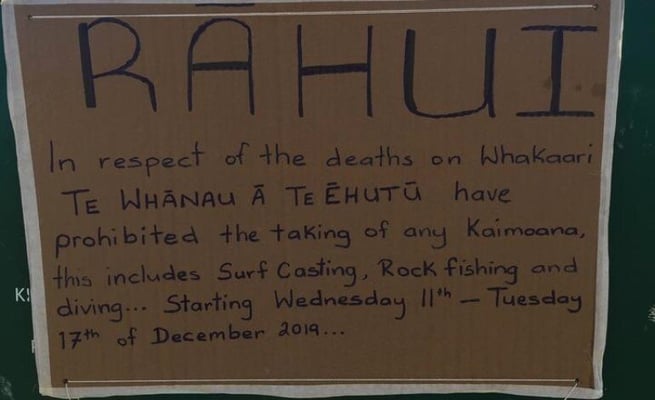 RĀHUI
In respect of the deaths on Whakaari
TE WHĀNAU Ā TE ĒHUTŪ have
prohibited the taking of any Kaimoana,
this includes Surf Casting, Rock fishing and
diving... Starting Wednesday 11th – Tuesday
17th of December 2019...